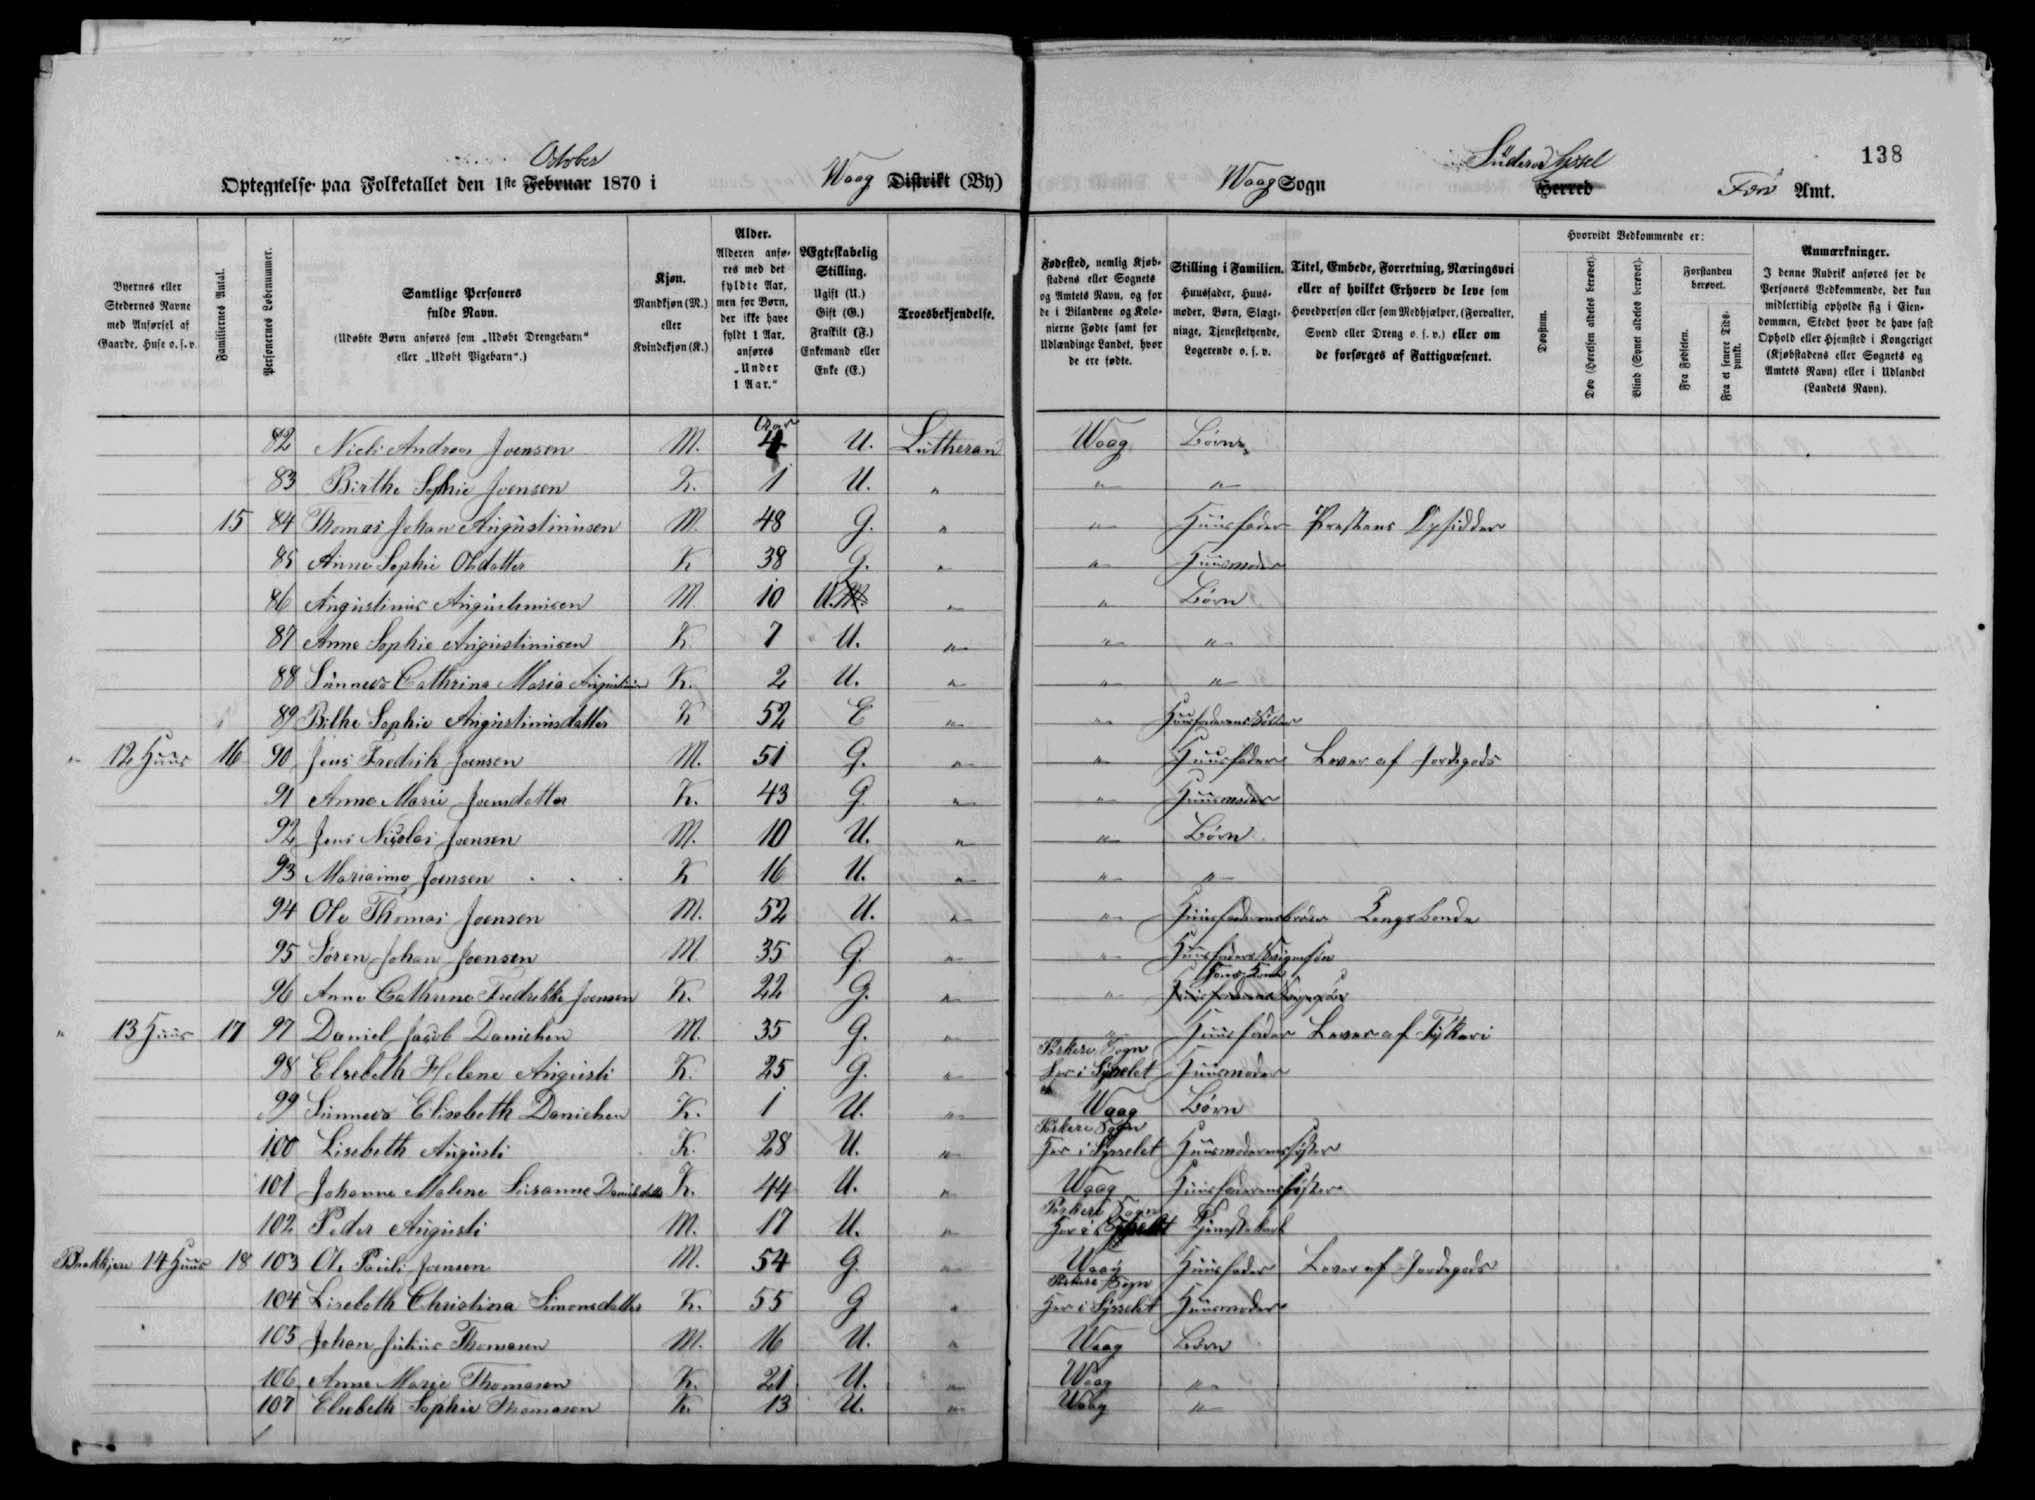 138
October
Optegnelse paa Folketallet den 1ste Februar 1870 i Waag Distrikt (By)
Waag Sogn Süderø Syssel Herred Færø Amt.
Byernes eller Stedernes Navne med Anførsel af Gaarde, Huse o. s. v.
Familiernes Antal.
Personernes Løbenummer.
Samtlige Personers fulde Navn.
(Udøbte Børn anføres som „Udøbt Drengebarn“ eller „Udøbt Pigebarn“.)
Kjøn. Mandkjøn (M.) eller Kvindekjøn (K.)
Alder. Alderen anføres med det fyldte Aar, men for Børn, der ikke have fyldt 1 Aar, anføres „Under 1 Aar.“
Ægteskabelig Stilling. Ugift (U.) Gift (G.) Fraskilt (F.) Enkemand eller Enke (E.)
Troesbekjendelse.
Fødested, nemlig Kjøbstadens eller Sognets og Amtets Navn, og for de i Bilandene og Kolonierne Fødte samt for Udlændinge Landet, hvor de ere fødte.
Stilling i Familien. Huusfader, Huusmoder, Børn, Slægtninge, Tjenestetyende, Logerende o. s. v.
Titel, Embede, Forretning, Næringsvei eller af hvilket Erhverv de leve som Hovedperson eller som Medhjælper, (Forvalter, Svend eller Dreng o. s. v.) eller om de forsørges af Fattigvæsenet.
Hvorvidt Vedkommende er:
Døvstum.
Døv (Hørelsen aldeles berøvet).
Blind (Synet aldeles berøvet).
Forstanden berøvet.
Fra Fødselen.
Fra et senere Tidspunkt.
Anmærkninger. I denne Rubrik anføres for de Personers Vedkommende, der kun midlertidig opholde sig i Eiendommen, Stedet hvor de have fast Ophold eller Hjemsted i Kongeriget (Kjøbstadens eller Sognets og Amtets Navn) eller i Udlandet (Landets Navn).
Aar
82 Nicli Andreas Joensen M. 4 U. Lutheran Waag Børn
83 Birthe Sophie Joensen K. 1 U. " " "
15 84 Thomas Johan Augustinusen M. 48 G. " " Huusfader Præstens Opsidder
85 Anne Sophie Olsdatter K 38 G. " " Huusmoder
86 Augustinus Augustinusen M 10 U. " " Børn
87 Anne Sophie Augustinusen K. 7 U. " " "
88 Sunneva Cathrina Maria Augustinus K. 2 U. " " "
89 Bilhe Sophie Augustinusdatter K 52 E " " Huusfaderens Søster
" 12 Huus 16 90 Jens Fredrik Joensen M. 51 G. " " Huusfader Lever af Jordegods
91 Anne Marie Joensdatter K. 43 G. " " Huusmoder
92 Jens Nicolai Joensen M. 10 U. " " Børn
93 Marianne Joensen K 16 U. " " "
94 Ole Thomas Joensen M. 52 U. " " Huusfaderens broder Kongsbonde
95 Søren Johan Joensen M 35 G. " " Huusfaders Svigersøn
96 Anne Cathrine Fredrikke Joensen K. 22 G. " " Sønns Kone
" 13 Huus 17 97 Daniel Jacob Danielsen M. 35 G. " " Huusfader Lever af Fiskeri
98 Elsebeth Helene Augusti K. 25 G. " Porkeri Sogn Her i Sysselet Huusmoder
99 Sunneva Elisabeth Danielsen K. 1 U. " Waag Børn
100 Lisebeth Augusti K. 28 U. " Porkeri Sogn Her i Sysselet Huusmoderens søster
101 Johanne Malene Susanne Danielsdatter K. 44 U. " Waag Huusfaderens søster
102 Peder Augusti M. 17 U. " Porkeri Sogn Her i Sysselet Tjenestekarl
14 Huus 18 103 Ole Pauli Joensen M. 54 G. " Waag Huusfader Lever af Jordegods
104 Lisebeth Christina Simonsdatter K. 55 G " Porkeri Sogn Her i Sysselet Huusmoder
105 Johan Julius Thomasen M. 16 U. " Waag Børn
106 Anne Marie Thomasen K. 21 U. " Waag "
107 Elsebeth Sophie Thomasen K. 13 U. " Waag "